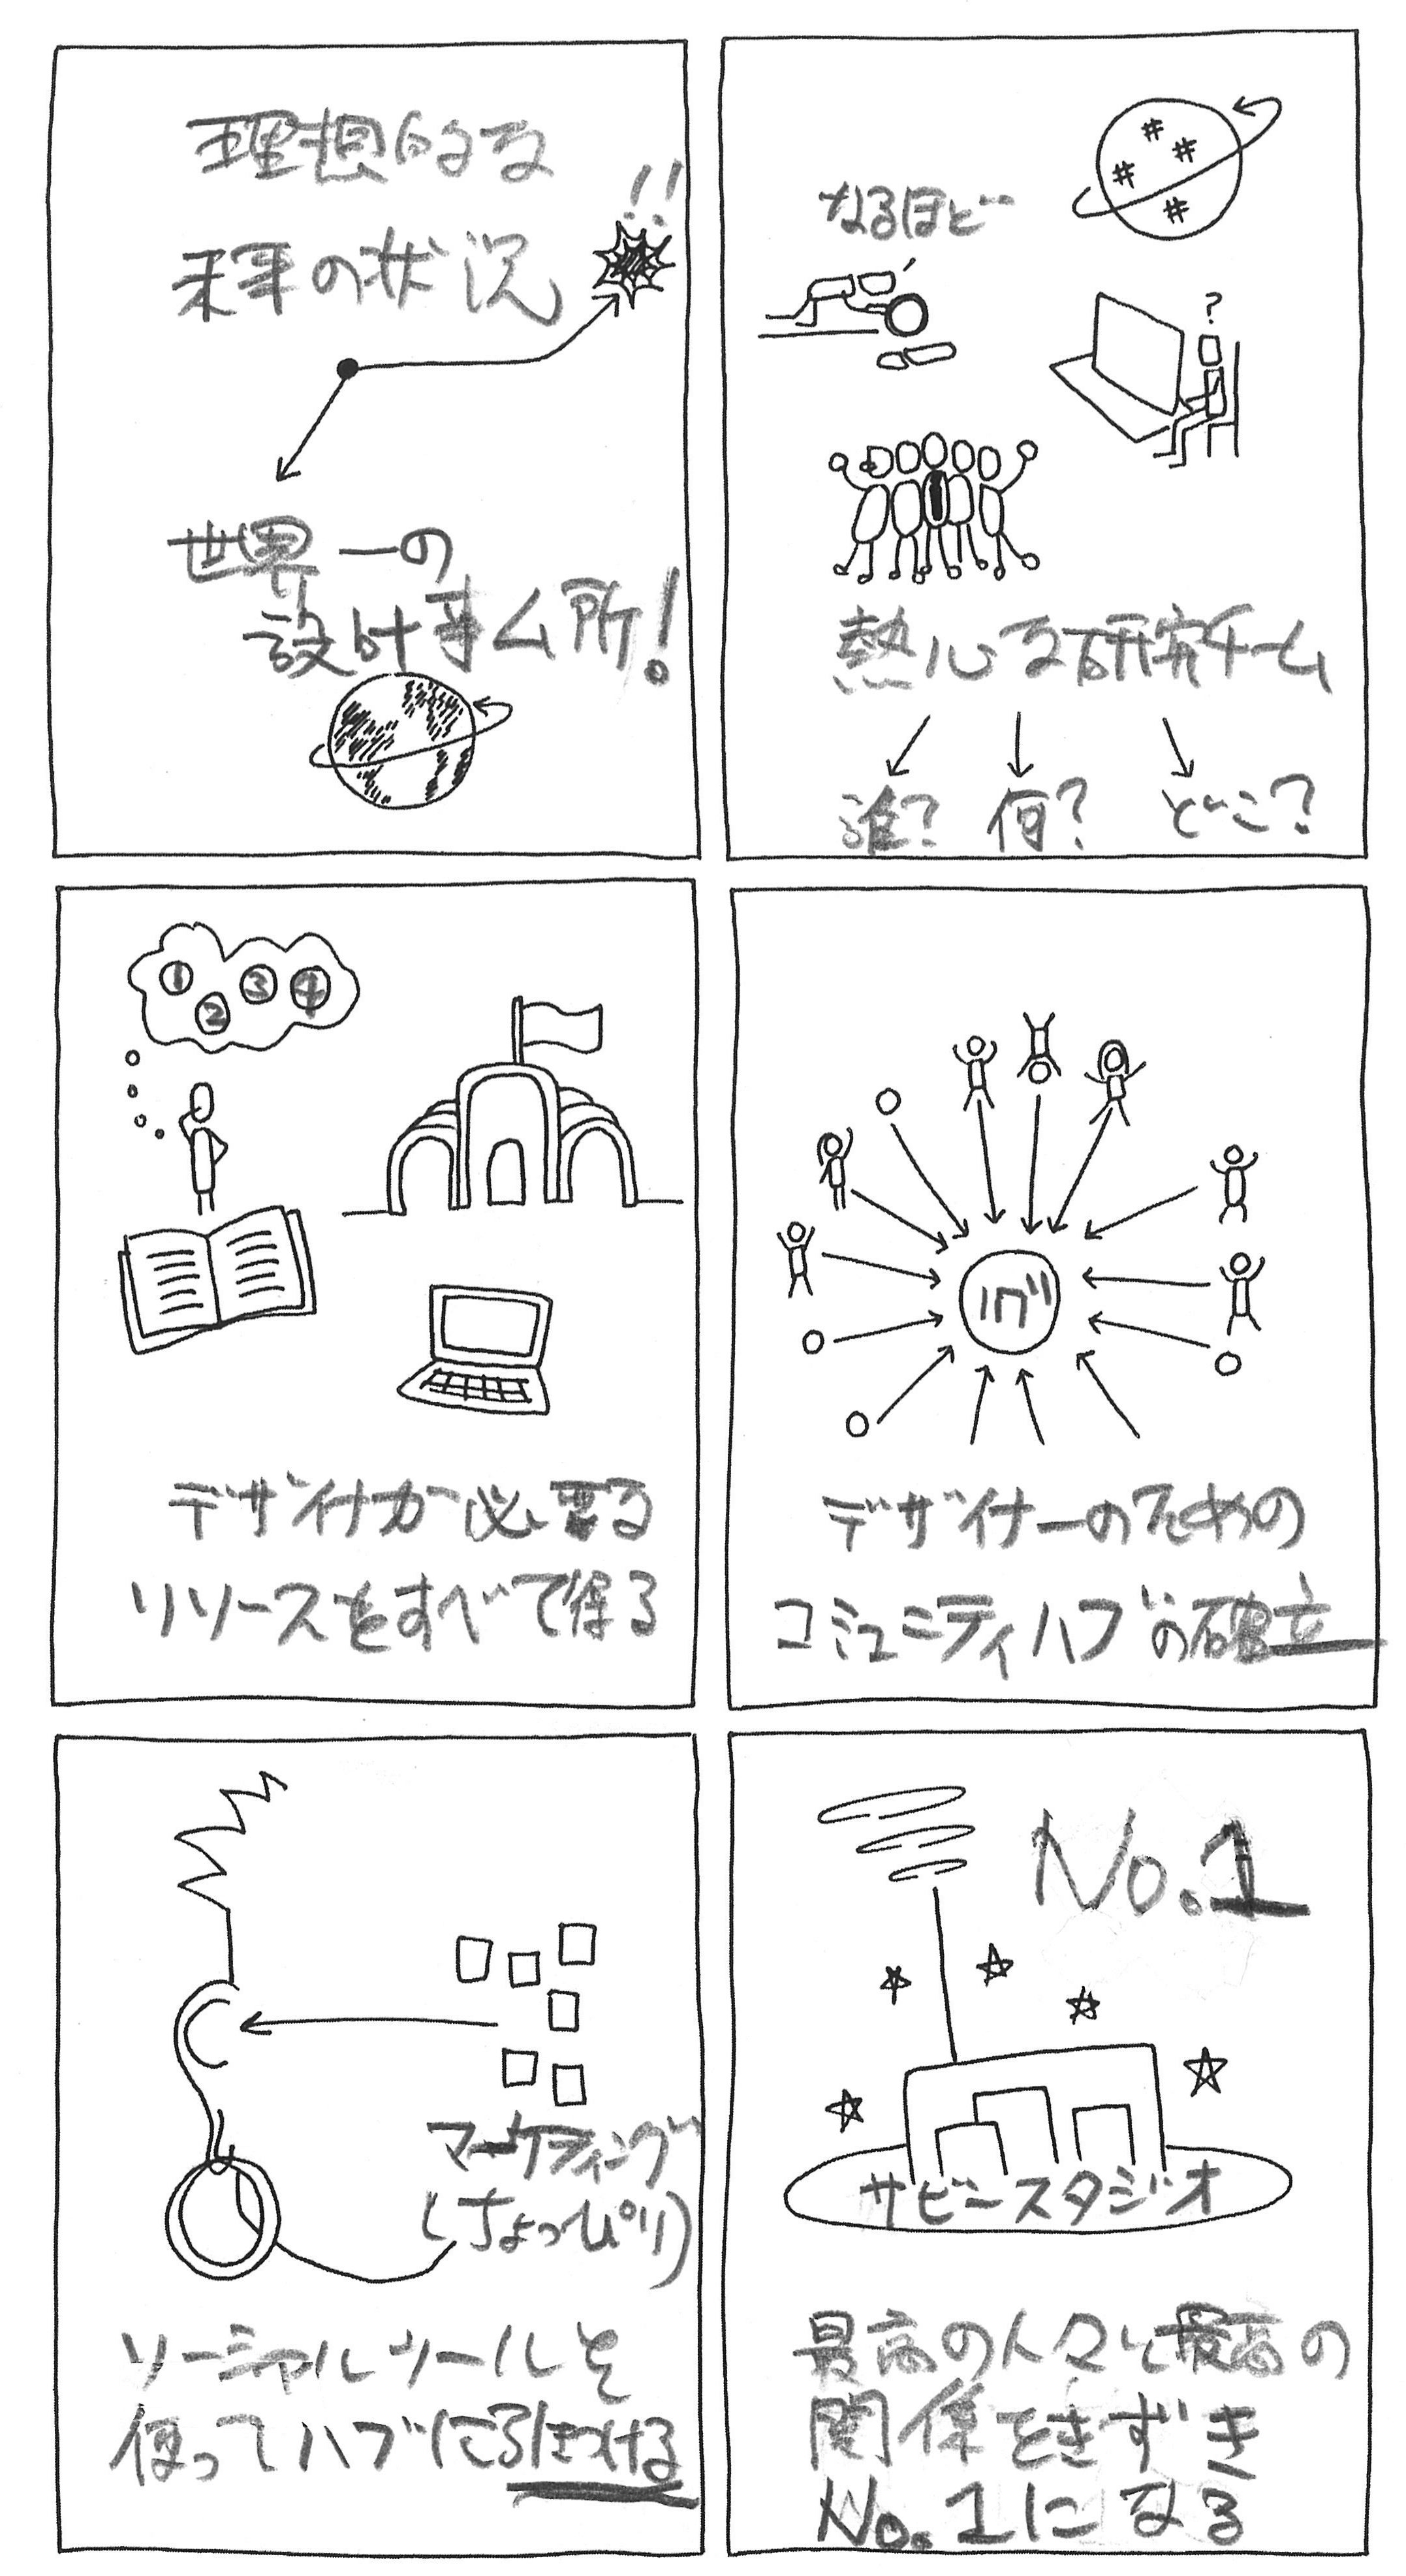 理想的な
未来の状況
!!
世界一の
設計事ム所!
# # # #
なるほど
?
熱心な研究チーム
誰? 何? どこ?
1 2 3 4
デザイナが必要な
リソースをすべて得る
ハブ
デザイナーのための
コミュニティハブの確立
マーケティング
(ちょっぴり)
ソーシャルツールを
使ってハブに引きつける
No.1
サビースタジオ
最高の人々と最高の
関係をきずき
No.1になる